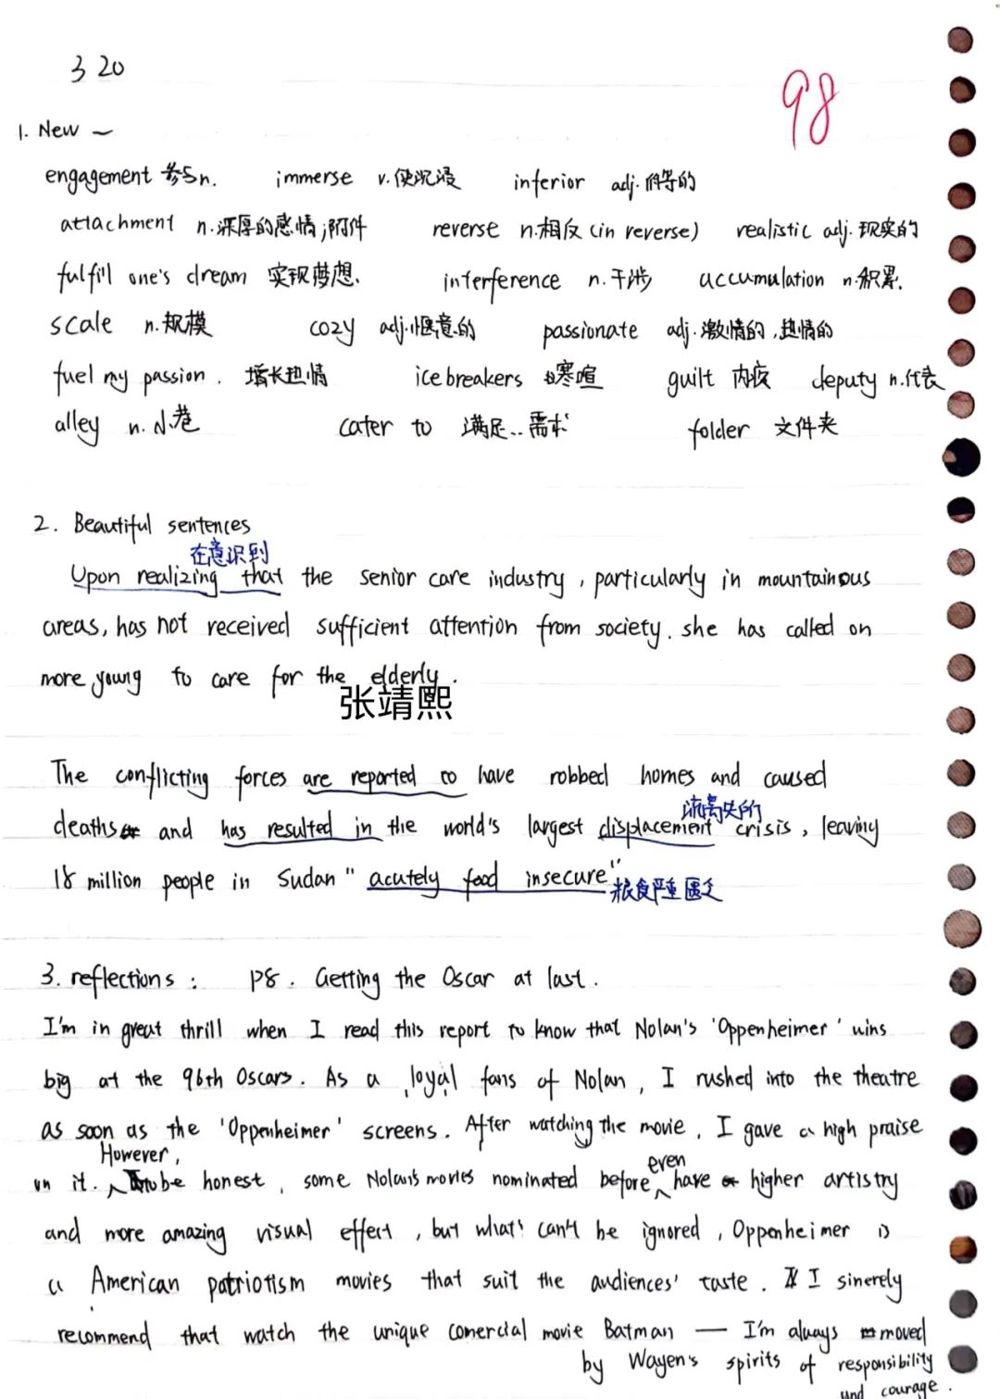 3 20
98
1. New ~
engagement 参与n. immerse v.使沉浸 inferior adj.低等的
attachment n.深厚的感情;附件 reverse n.相反(in reverse) realistic adj.现实的
fulfill one's dream 实现梦想. interference n.干涉 accumulation n.积累.
scale n.规模 cozy adj.惬意的 passionate adj.激情的,热情的
fuel my passion. 增长热情 icebreakers 寒暄 guilt 内疚 deputy n.代表
alley n.小巷 cater to 满足..需求 folder 文件夹
2. Beautiful sentences
在意识到
Upon realizing that the senior care industry, particularly in mountainous
areas, has not received sufficient attention from society. she has called on
more young to care for the elderly.
张靖熙
The conflicting forces are reported to have robbed homes and caused
流离失所
deaths and has resulted in the world's largest displacement crisis, leaving
18 million people in Sudan "acutely food insecure"
粮食严重匮乏
3. reflections: P8. Getting the Oscar at last.
I'm in great thrill when I read this report to know that Nolan's 'Oppenheimer' wins
big at the 96th Oscars. As a loyal fans of Nolan, I rushed into the theatre
as soon as the 'Oppenheimer' screens. After watching the movie, I gave a high praise
However,
on it. to be honest, some Nolan's movies nominated before even have higher artistry
and more amazing visual effect, but what's can't be ignored, Oppenheimer is
a American patriotism movies that suit the audiences' taste. I sinerely
recommend that watch the unique comercial movie Batman — I'm always moved
by Wayen's spirits of responsibility
and courage.